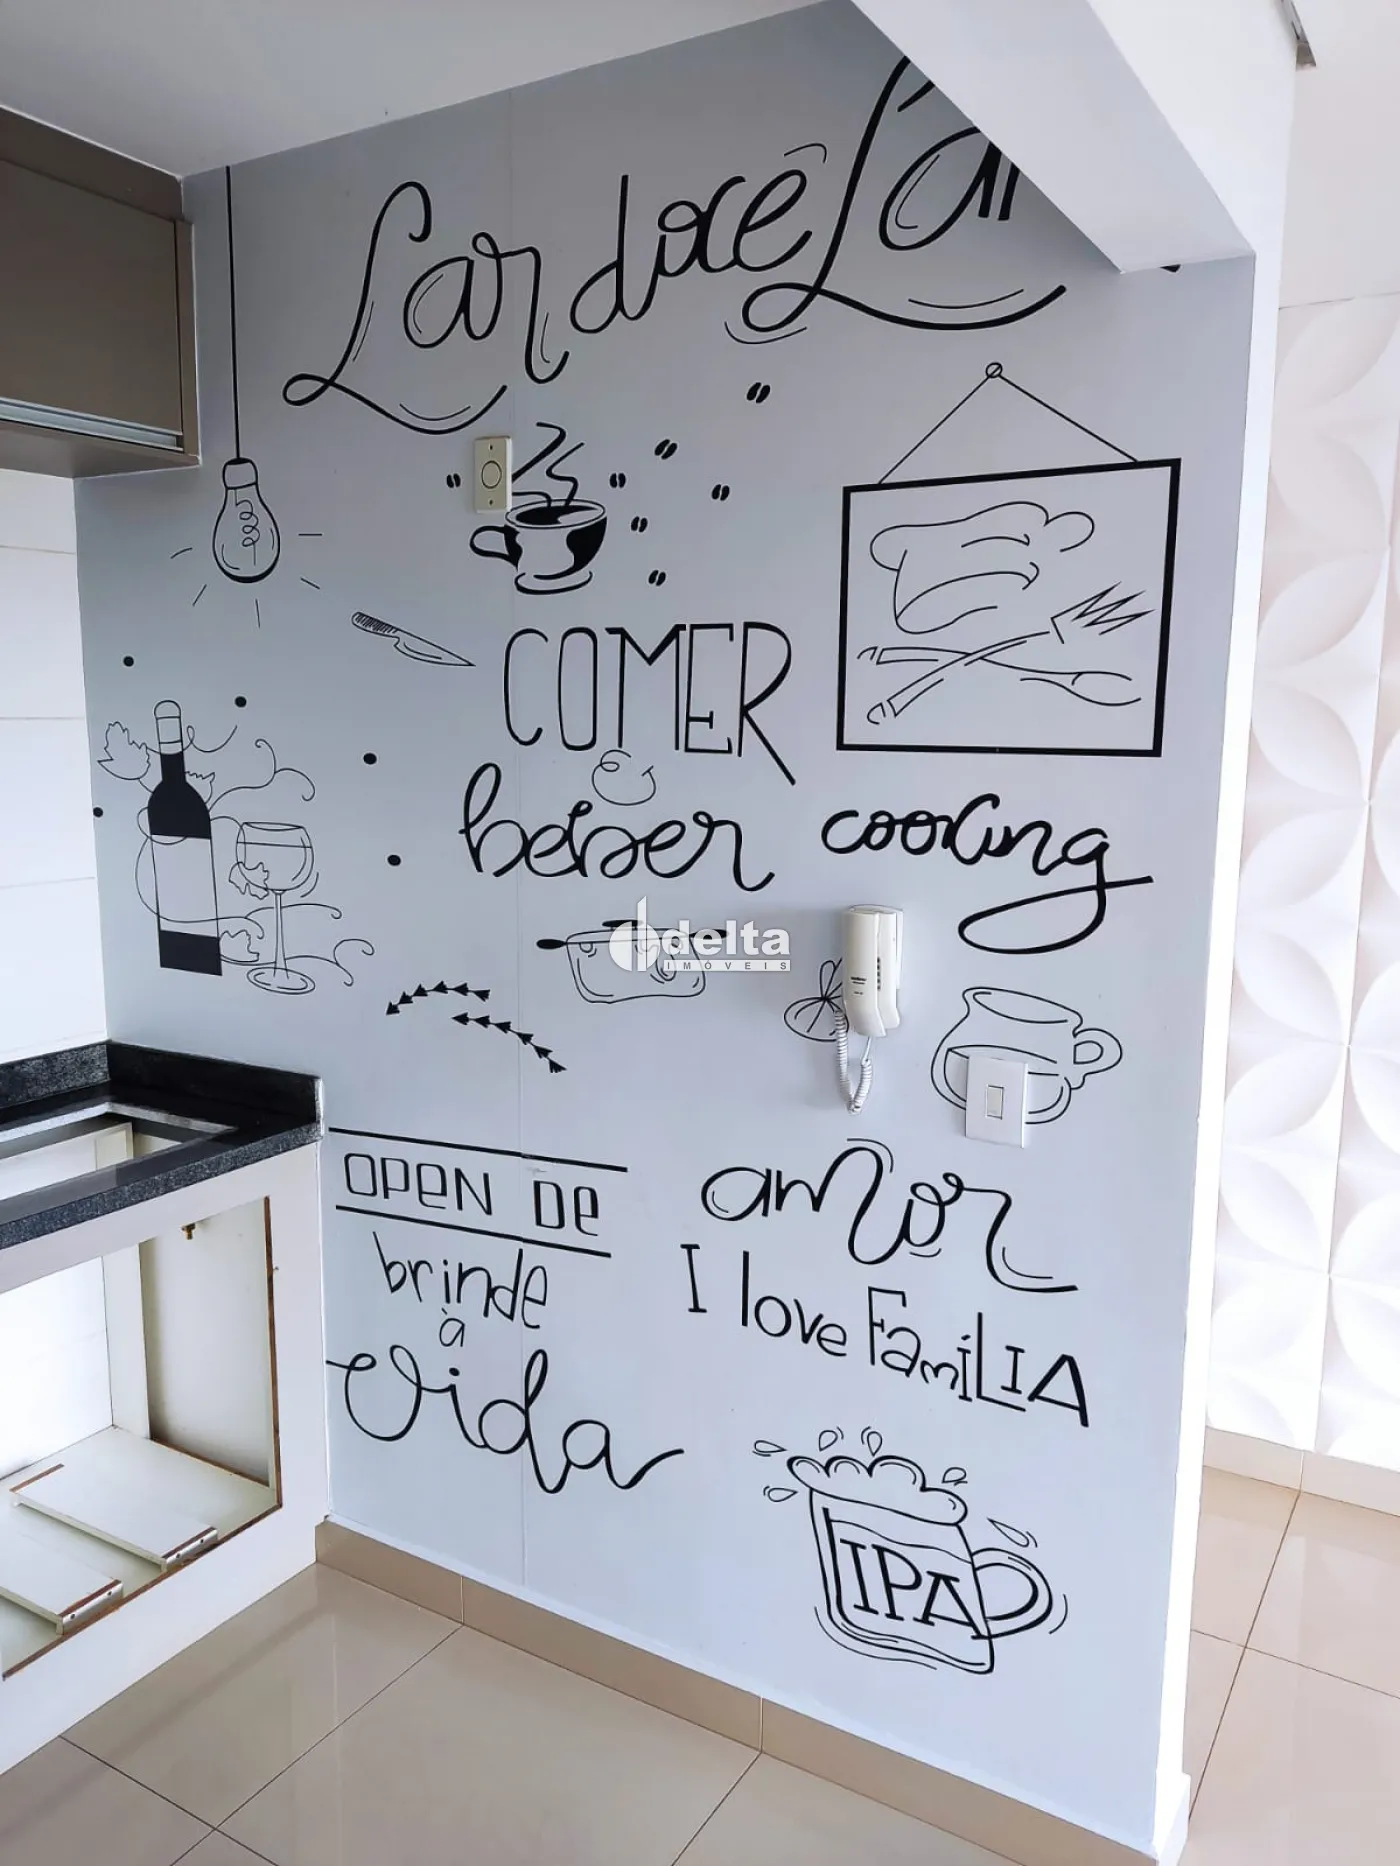 Lar doce Lar
COMER
&
beber
cooking
delta
IMÓVEIS
OPEN DE
brinde
à
vida
amor
I love FamíLIA
IPA